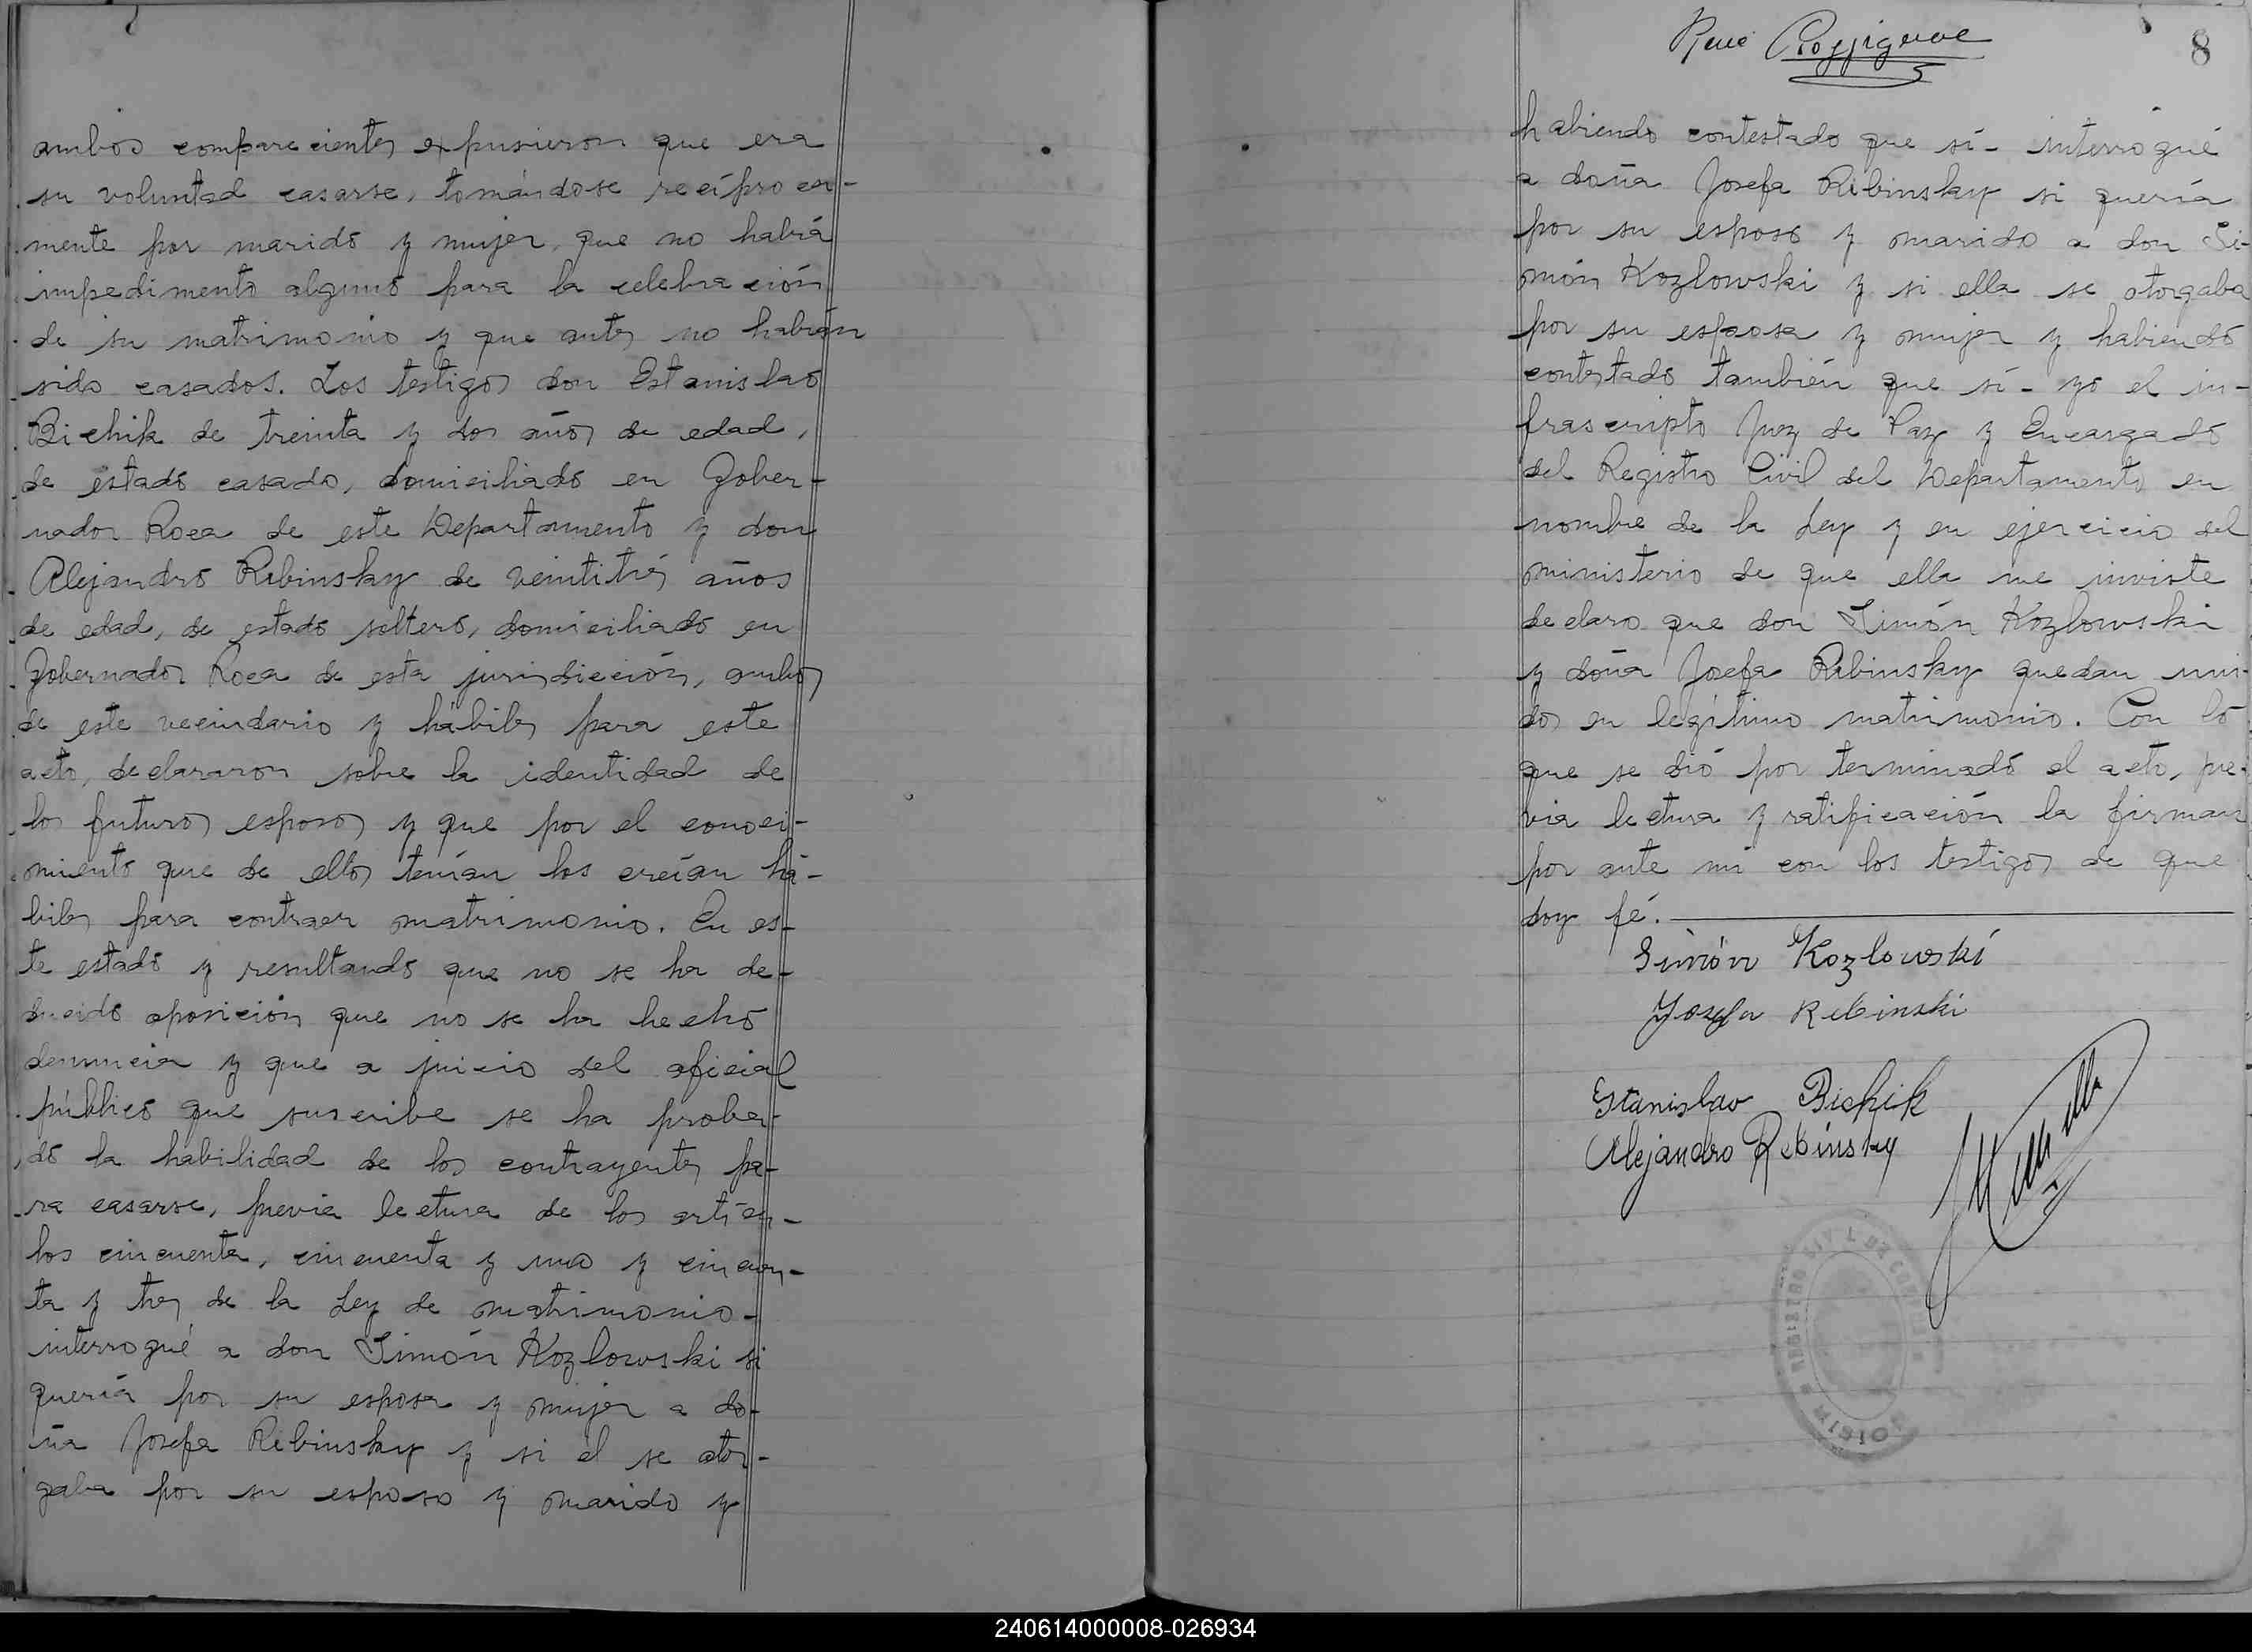 ambos comparecientes expusieron que era
su voluntad casarse, tomándose recíproca-
mente por marido y mujer, que no había
impedimento alguno para la celebración
de su matrimonio y que antes no habían
sido casados. Los testigos don Estanislao
Bichik de treinta y dos años de edad,
de estado casado, domiciliado en Gober-
nador Roca de este Departamento y don
Alejandro Rebinsky de veintitrés años
de edad, de estado soltero, domiciliado en
Gobernador Roca de esta jurisdicción, ambos
de este vecindario y hábiles para este
acto, declararon sobre la identidad de
los futuros esposos y que por el conoci-
miento que de ellos tenían los creían há-
biles para contraer matrimonio. En es-
te estado y resultando que no se ha de-
ducido oposición que no se ha hecho
denuncia y que a juicio del oficial
público que suscribe se ha proba-
do la habilidad de los contrayentes pa-
ra casarse, previa lectura de los artícu-
los cincuenta, cincuenta y uno y cincuen-
ta y tres de la Ley de matrimonio-
interrogué a don Simón Kozlowski si
quería por su esposa y mujer a do-
ña Josefa Rebinsky y si él se otor-
gaba por su esposo y marido y
René
8
habiendo contestado que sí- interrogué
a doña Josefa Rebinsky si quería
por su esposo y marido a don Si-
món Kozlowski y si ella se otorgaba
por su esposa y mujer y habiendo
contestado también que sí- yo el in-
frascripto Juez de Paz y Encargado
del Registro Civil del Departamento en
nombre de la Ley y en ejercicio del
ministerio de que ella me inviste
declaro que don Simón Kozlowski
y doña Josefa Rebinsky quedan uni-
dos en legítimo matrimonio. Con lo
que se dió por terminado el acto, pre-
via lectura y ratificación la firman
por ante mi con los testigos de que
doy fé.
Simón Kozlowski
Josefa Rebinski
Estanislao Bichik
Alejandro Rebinsky
240614000008-026934